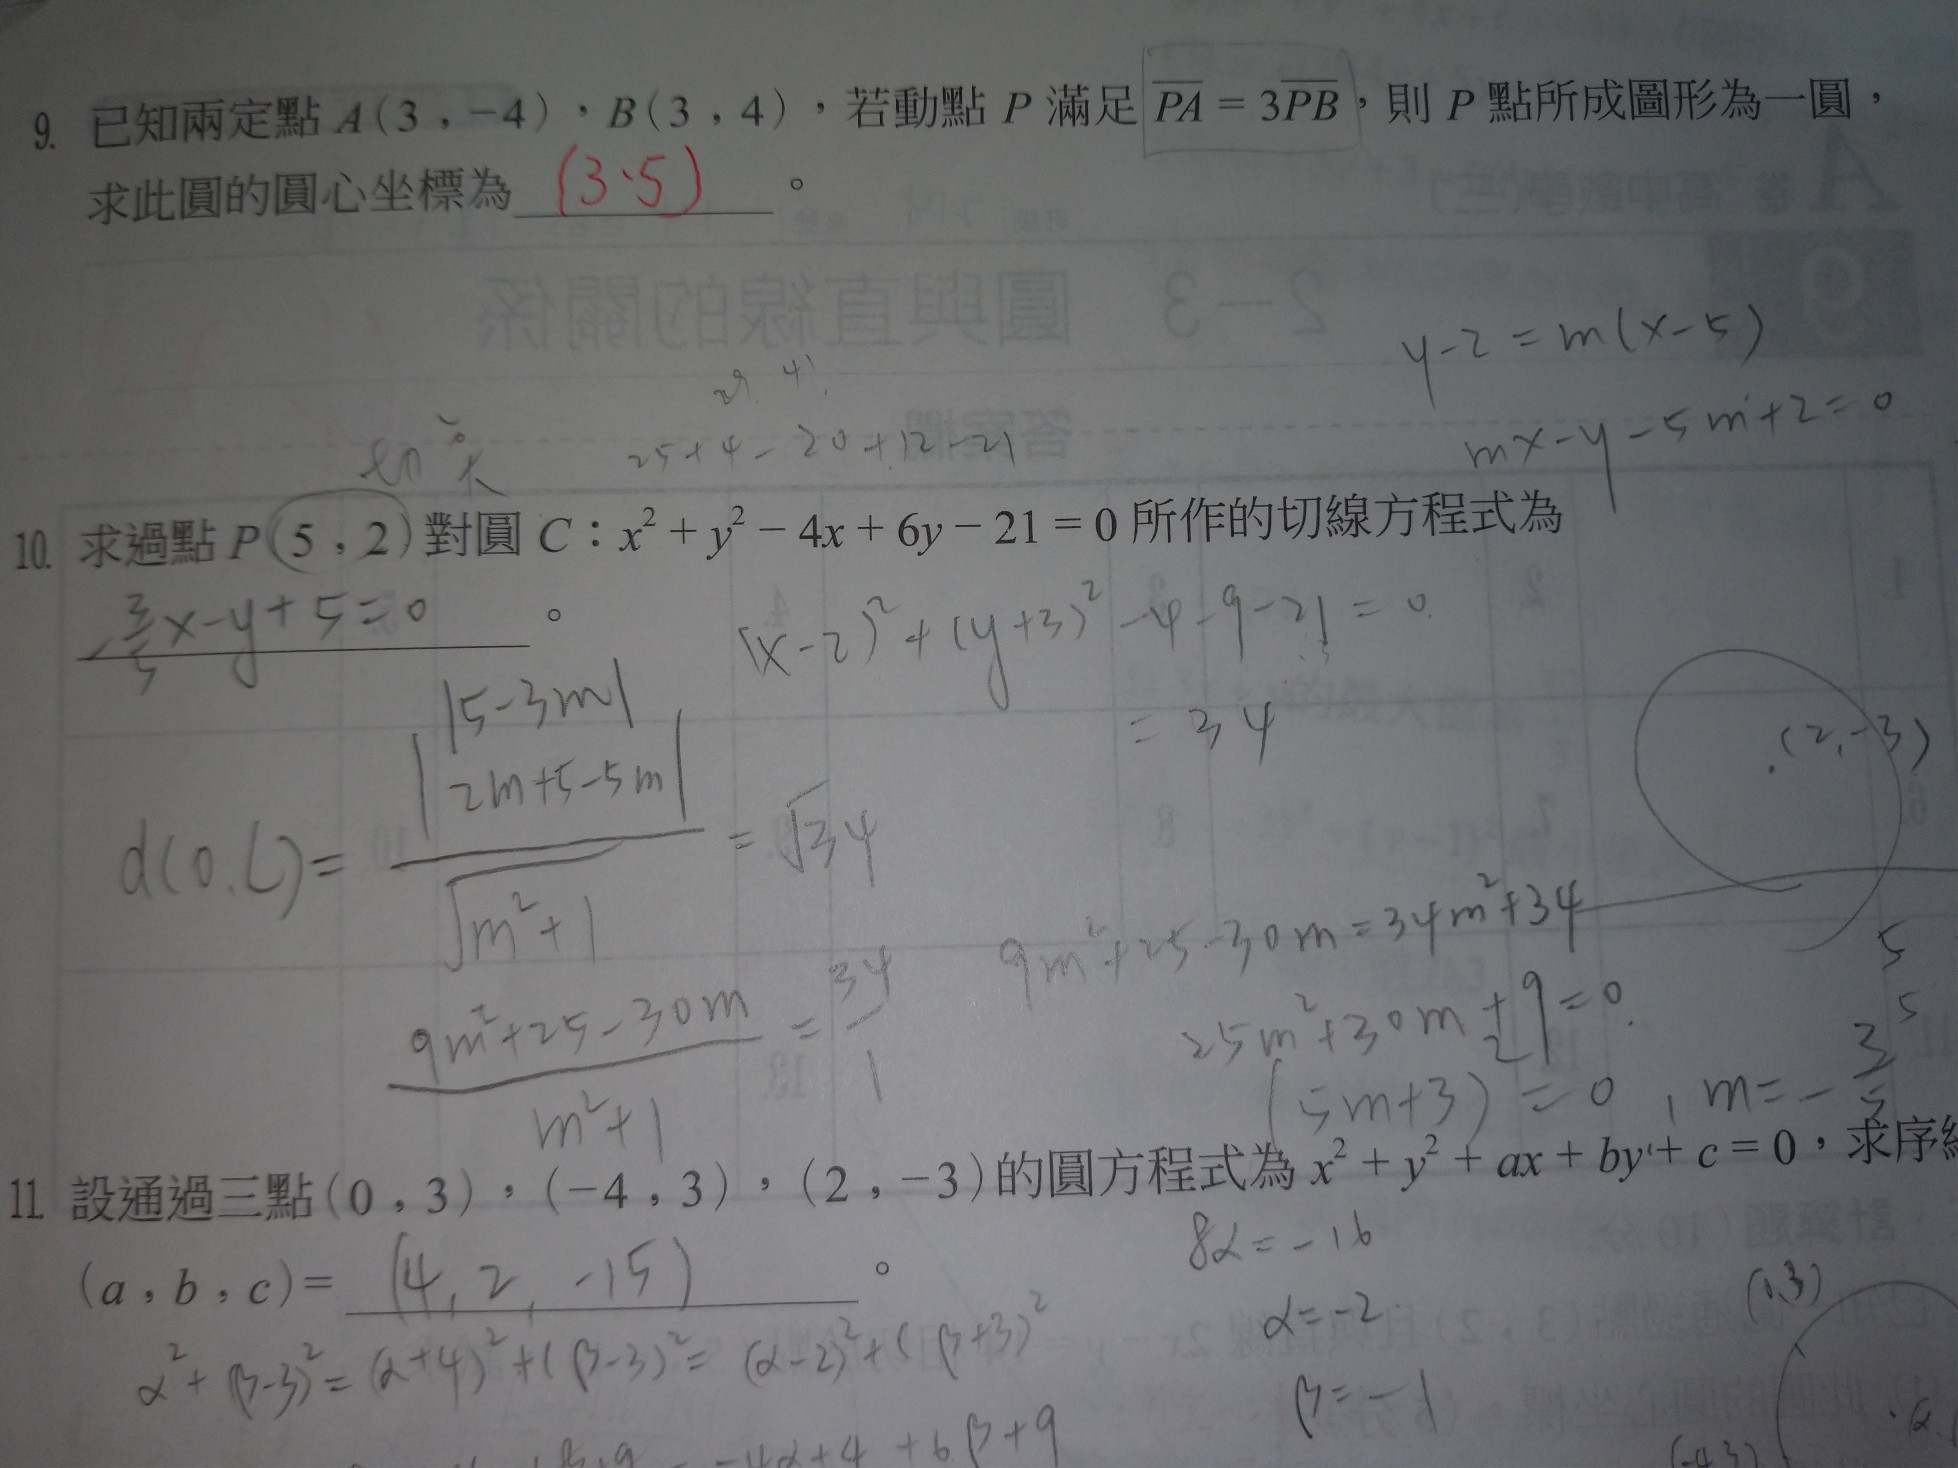 9. 已知兩定點 A(3,-4),B(3,4),若動點 P 滿足 PA = 3PB,則 P 點所成圖形為一圓,
求此圓的圓心坐標為 (3、5) 。
y-2=m(x-5)
mx-y-5m+2=0
25+4-20+12-21
10. 求過點 P(5,2)對圓 C:x²+y²-4x+6y-21=0 所作的切線方程式為
-3/5x-y+5=0 。
(x-2)²+(y+3)²-4-9-21=0
=34
(2,-3)
|5-3m|
d(O.L)= |2m+5-5m| / √m²+1 = √34
9m²+25-30m=34m²+34
9m²+25-30m / m²+1 = 34 / 1
25m²+30m+9=0
(5m+3)=0, m=-3/5
11. 設通過三點(0,3),(-4,3),(2,-3)的圓方程式為 x²+y²+ax+by+c=0,求序
(a,b,c)= (4,2,-15) 。
8α=-16
α=-2
(0,3)
α²+(β-3)²=(α+4)²+(β-3)²=(α-2)²+(β+3)²
β=-1
-4α+4+6β+9
(-4,3)